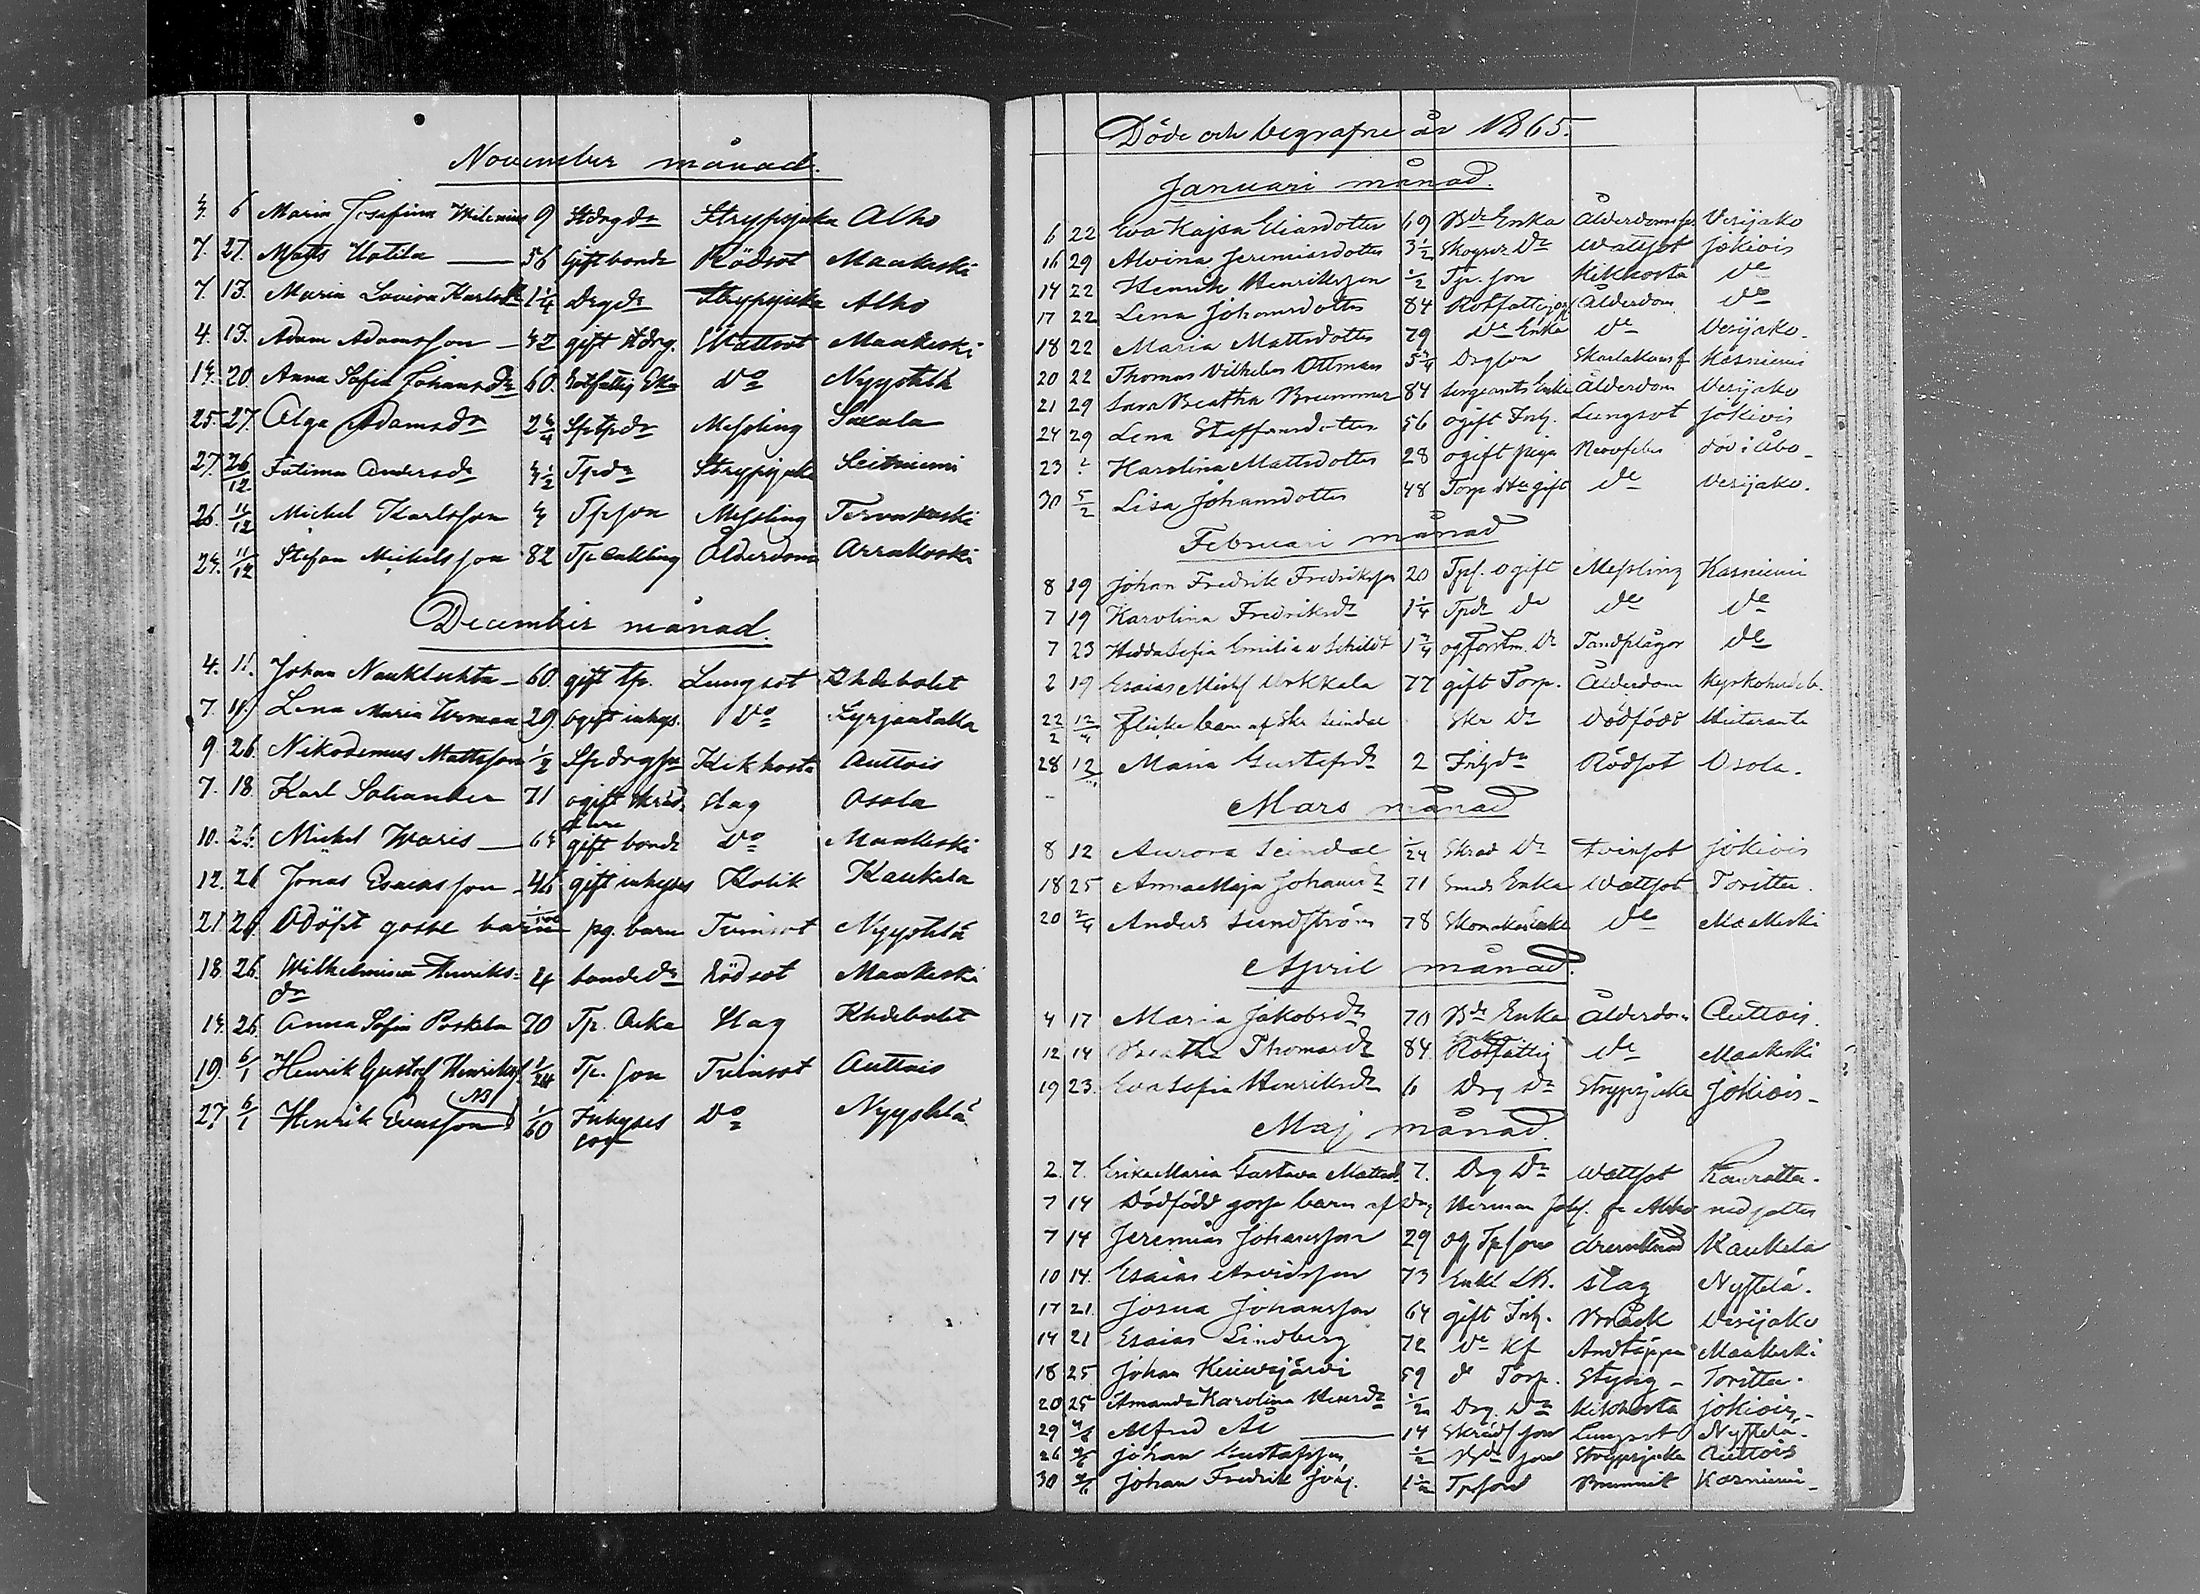 November månad.
4. 6 Maria Josefina Wilenius 9 Stdrgdr Strypsjuka Alho
7. 27. Matts Uotila — 56 Gift bonde Rödsot Maakeski
7. 13. Maria Lovisa Karlsdr 1 1/4 Drgdr Strypsjuka Alho
4. 13. Adam Adamsson — 42 gift Stdrg. Wattsot Maakeski
14. 20. Anna Sofia Johansdr 60. Rotfattig Eka Do Nyystölä
25. 27. Olga Adamsdr 2 3/4 Sptpdr Messling Saxala
27. 26/12 Fatima Andersdr 4 1/2 Tpdr Strypsjuka Seitniemi
26. 11/12 Mickel Karlsson 4 Tpson Messling Torvakoski
24. 11/12 Stefan Mickelsson 82 Tp. enkling Ålderdom Arrakoski
December månad.
4. 11. Johan Naukluhta — 60. gift tp. Lungsot Khdebolet
7. 11. Lena Maria Urman 29. ogift inhys. Do Syrjäntaka
9 26. Nikodemus Mattsson 1/2 Sp drgson Kikhosta Auttois
7. 18. Karl Solander 71 ogift skräd- Slag Osola
dare
10. 26. Mickel Waris — 64 gift bonde Do Maakeski
12. 26 Jonas Esaiasson — 46 gift inhyses Kolik Kaukela
21. 26 Odöpt gosse barn pg. barn Tvinsot Nyystölä
18. 26. Wilhelmina Henriks- 4 bondedr Rödsot Maakeski
dr
14. 26. Anna Sofia Poskela 70 Tp. Enka Slag Khdebolet
19. 6/1 Henrik Gustaf Henrikss. 1/24 Tp. son Tvinsot Auttois
27 6/1 Henrik Evasson (NB) 1/60 Inhyses Do Nyystölä
son
Döde och begrafne år 1865.
Januari månad.
6 22 Eva Kajsa Eliasdotter 69 Bde Enka Ålderdomssv Verijako
16 29 Alvina Jeremiasdotter 3 1/2 Skogsv. Dr Wattsot Jokiois
14 22 Henrik Henriksson 1/2 Tp. son Kikhosta do
17 22 Lena Johansdotter 84 Rotfattig Ålderdom do
18 22 Maria Mattsdotter 79 do Enka do Verijako.
20 22 Thomas Vilhelm Ottman 5 3/4 Drgson Skarlakansf Kasniemi
21 29 Sara Beatha Brummer 84 Sergeants Enka Ålderdom Verijako
24 29 Lena Staffansdotter 56 ogift Inh. Lungsot Jokiois
23 ? Karolina Mattsdotter 28 ogift piga Nervfeber död i Åbo
30 5/2 Lisa Johansdotter 48 Torp gift do Verijako.
Februari månad
8 19 Johan Fredrik Fredriksson 20 Tps. ogift Messling Kasniemi
7 19 Karolina Fredriksdr 1 1/4 Tpdr do do do
7 23 Hedda Sofia Emilia v Schildt 1 3/4 Dr Tandplågor do
2 19 Esaias Urkkala 77 gift Torp. Ålderdom
22/2 12/4 Flicke barn af Skr Lindal Skr Dr Dödfödd
28 12 Maria Gustafsdr 2 Inhdr Rödsot Osola.
Mars månad
8 12 Aurora Lindal 1/24 Skrad Dr Tvinsot Jokiois
18 25 Anna Maja Johansdr 71 Smeds Enka Wattsot Toritta.
20 2/4 Anders Sundström 78 Skomakare do Maakeski
April månad.
4 17 Maria Jakobsdr 70 Bde Enka Ålderdom Auttois.
12 14 Beatha Thomasdr 84. Rotfattig do Maakeski
19 23. Eva Sofia Henriksdr 6 Drg Dr Strypsjuka Jokiois
Maj månad.
2. 7. Erika Maria Gustava Mattsdr 7. Drg Dr Wattsot Kouratta.
7 14 Dödfödd gosse barn af Drg Herman Johs. fr Alho
7 14 Jeremias Johansson 29 og Tpson drunknad Kaukela
10 14. Esaias Arvidsson 73 Enkl slag Nystölä.
17 21. Josua Johansson 64 gift Inh. Bråck Verijako
14 21 Esaias Lindberg 72 do Andtäppa Maakeski
18 25 Johan Keinusjärvi 59 do Torp. Styng Toritta.
20 25 Amanda Karolina Henrdr 1/2 Drg Dr Kikhosta Jokiois
29 4/6 Alfred Al — 14 Skrädd son Lungsot Nystölä.
26 4/6 Johan Gustafsson 1/2 Bde son Strypsjuka Auttois
30 4/6 Johan Fredrik Johs. 1 1/2 Tpson Kasniemi